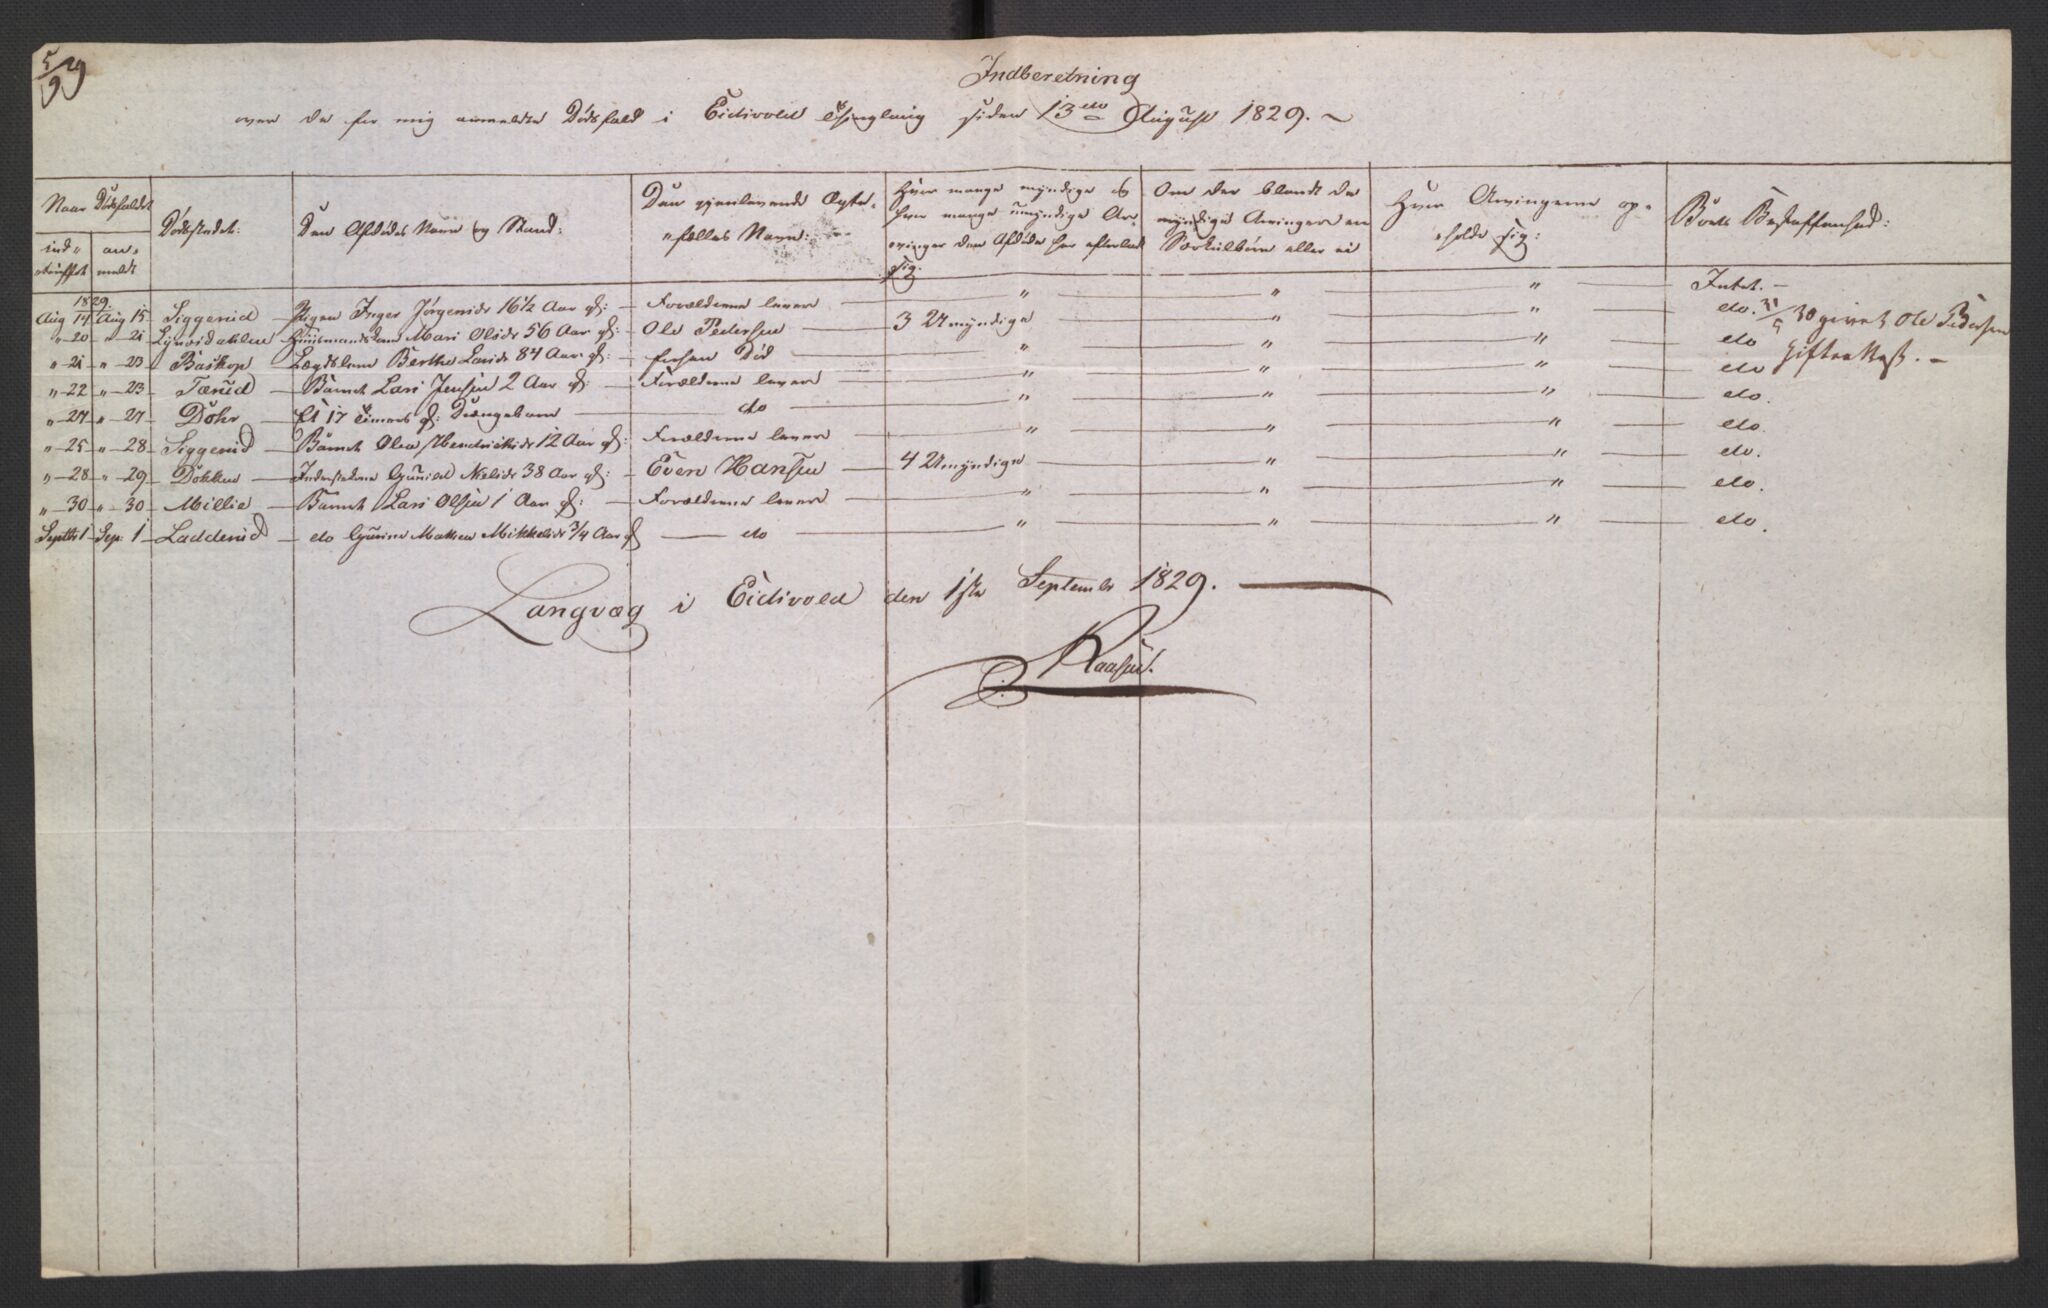 5/9 29
Indberetning
over de for mig anmeldte Dødsfald i Eidsvold Thinglaug siden 13de August 1829. ~
Naar Dødsfaldet
ind- an-
-truffet meldt
Dødsstedet:
Den Afdødes Navn og Stand:
Den gjenlevende Ægte-
-fælles Navn:
Hvor mange myndige og
hvor mange umyndige Ar-
vinger den Afdøde har efterladt
sig.
Om der blandt de
myndige Arvinger ere
Særkulbørn eller ei
Hvor Arvingerne op-
-holde sig:
Boets Beskaffenhed:
1829.
Aug 14 Aug 15 Siggerud Pigen Inger Jørgensdr 16 1/2 Aar gl: Forældrene lever " " " Intet. -
" 20 " 21 Huusmandskone Mari Olsdr 56 Aar gl: Ole Pedersen 3 Umyndige " " do. 31/5 30 givet Ole Pedersen
Giftertest. -
" 21 " 23 Baskop Lægdslem Berthe Larsdr 84 Aar gl: forhen Død " " " do
" 22 " 23 Tærud Barnet Lars Jensen 2 Aar gl: Forældrene lever " " " do
" 27 " 27 Dohr Et 17 Timers gl: Drengebarn do " " " do.
" 25 " 28 Siggerud Barnet Olea Hendriksdr 12 Aar gl: Forældrene lever " " " do.
" 28 " 29 Dokken Inderstekone Gunild Nelsdr 38 Aar gl: Even Hansen 4 Umyndige " " do.
" 30 " 30 Millie Barnet Lars Olsen 1 Aar gl: Forældrene lever " " " do.
Septbr 1 Sep: 1 Ladderud do Gurine Mathea Mikkelsdr 3/4 Aar gl do " " " do.
Langvæg i Eidsvold den 1ste September 1829.
Kaasen.